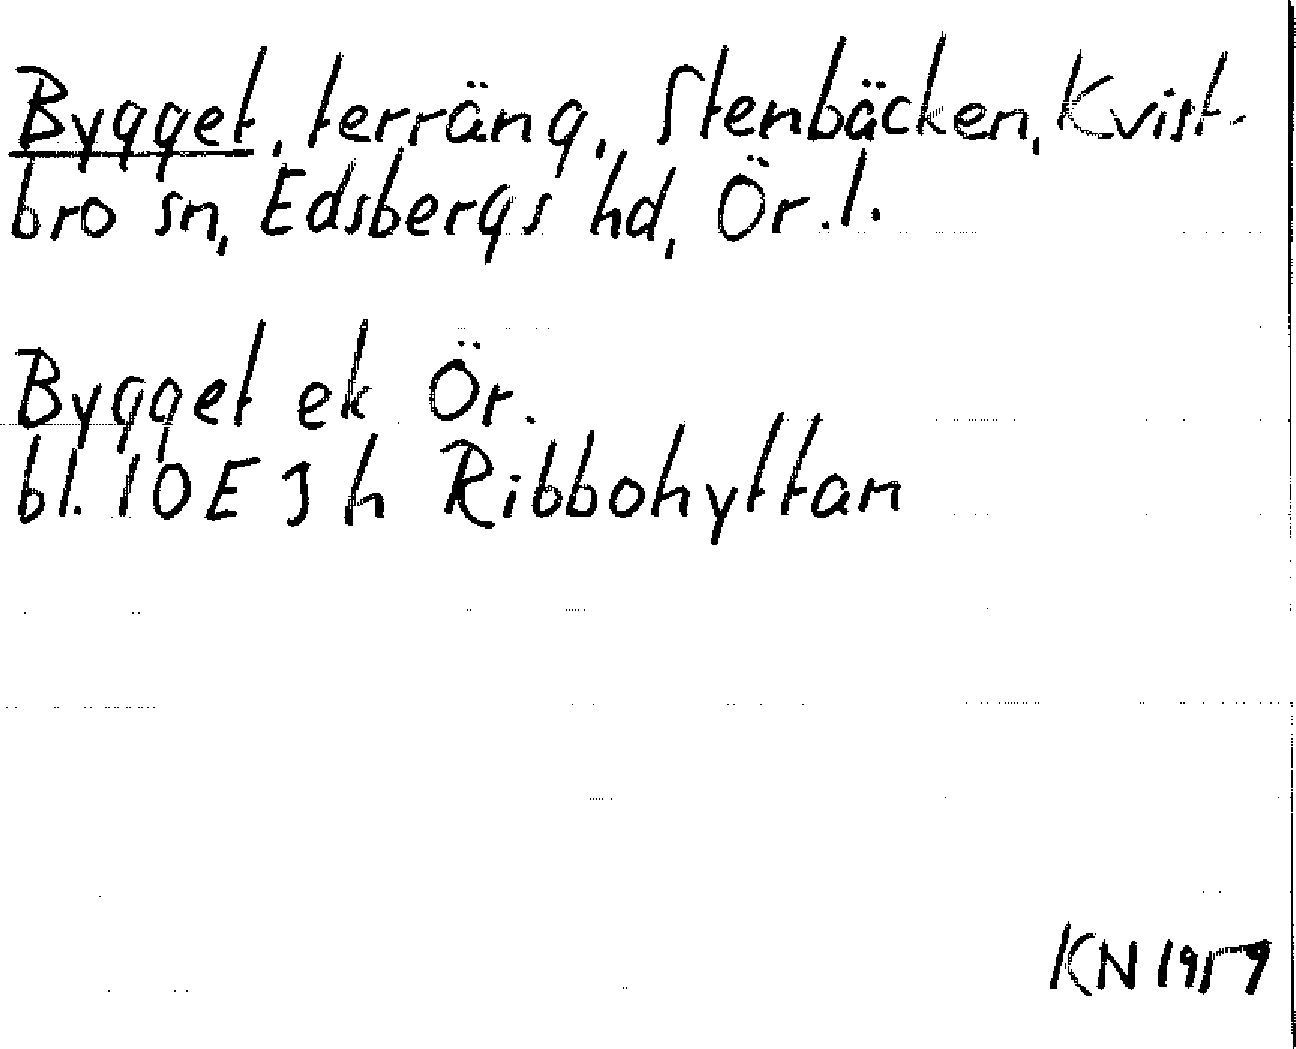 Bygget, terräng, Stenbäcken, Kvist-
bro sn, Edsbergs hd, Ör.l.
Bygget ek Ör.
bl. 10E3h Ribbohyttan
KN 1959